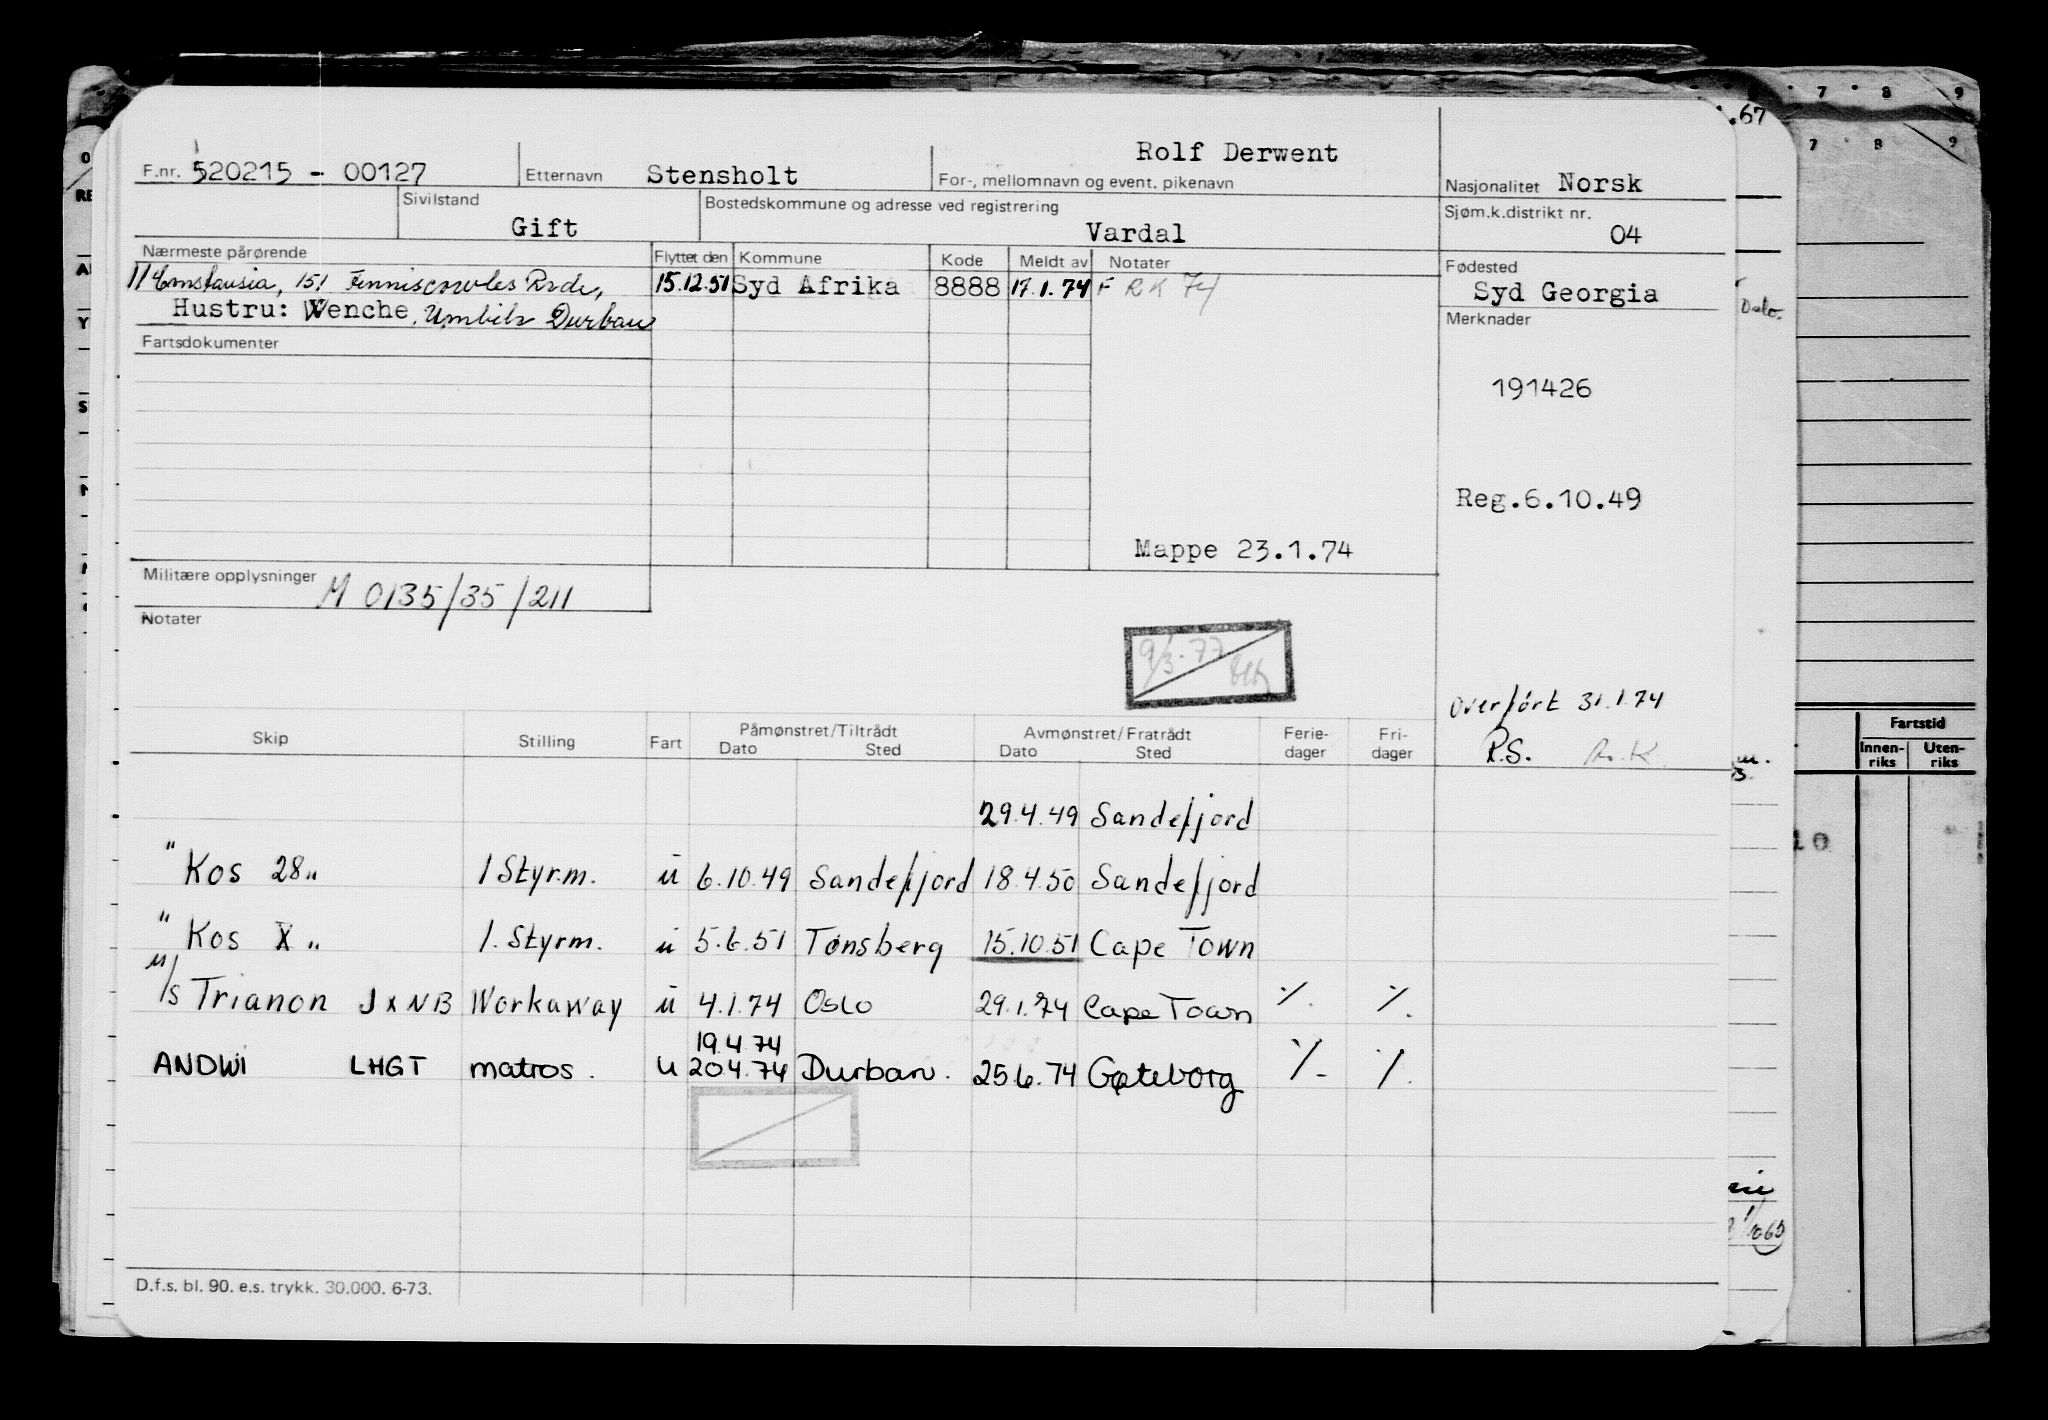 F.nr. 520215 - 00127 Etternavn Stensholt Rolf Derwent
For-, mellomnavn og event. pikenavn Nasjonalitet Norsk
Sivilstand Gift Bostedskommune og adresse ved registrering Vardal Sjøm.k.distrikt nr. 04
Nærmeste pårørende Flyttet den Kommune Kode Meldt av Notater Fødested
151 15.12.51 Syd Afrika 8888 17.1.74 F R K 74 Syd Georgia
Hustru: Wenche, Umbilo Durban Merknader
Fartsdokumenter
191426
Reg.6.10.49
Mappe 23.1.74
Militære opplysninger M 0135/35/211
Notater
9/3-77
Overført 31.1.74
R.S. R.K.
Skip Stilling Fart Påmønstret/Tiltrådt Dato Sted Avmønstret/Fratrådt Dato Sted Ferie-dager Fri-dager
29.4.49 Sandefjord
"Kos 28" 1 Styrm. u 6.10.49 Sandefjord 18.4.50 Sandefjord
"Kos X" 1. Styrm. u 5.6.51 Tønsberg 15.10.51 Cape Town
M/S Trianon JXNB Workaway u 4.1.74 Oslo 29.1.74 Cape Town ./. ./.
19.4.74
ANDWI LHGT matros. u 20.4.74 Durban. 25.6.74 Gøteborg ./. ./.
D.f.s. bl. 90. e.s. trykk. 30.000. 6-73.
.67
7 8 9
7 8 9
Oslo.
Fartstid
Innen-riks Uten-riks